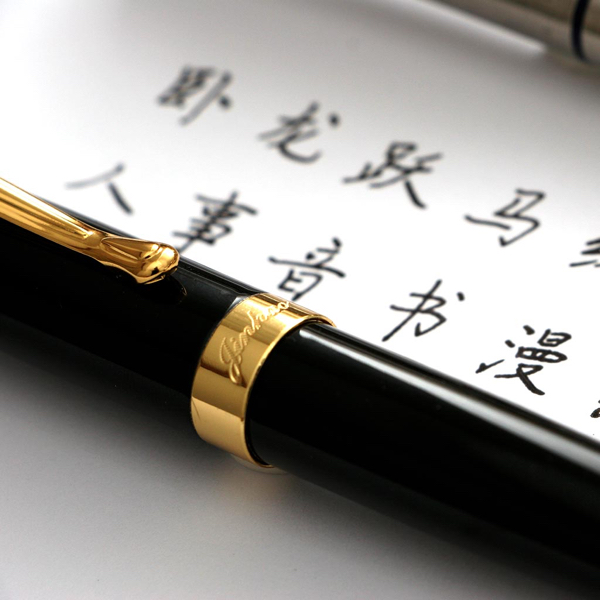 卧龙跃马
人事音书漫
Jinhao